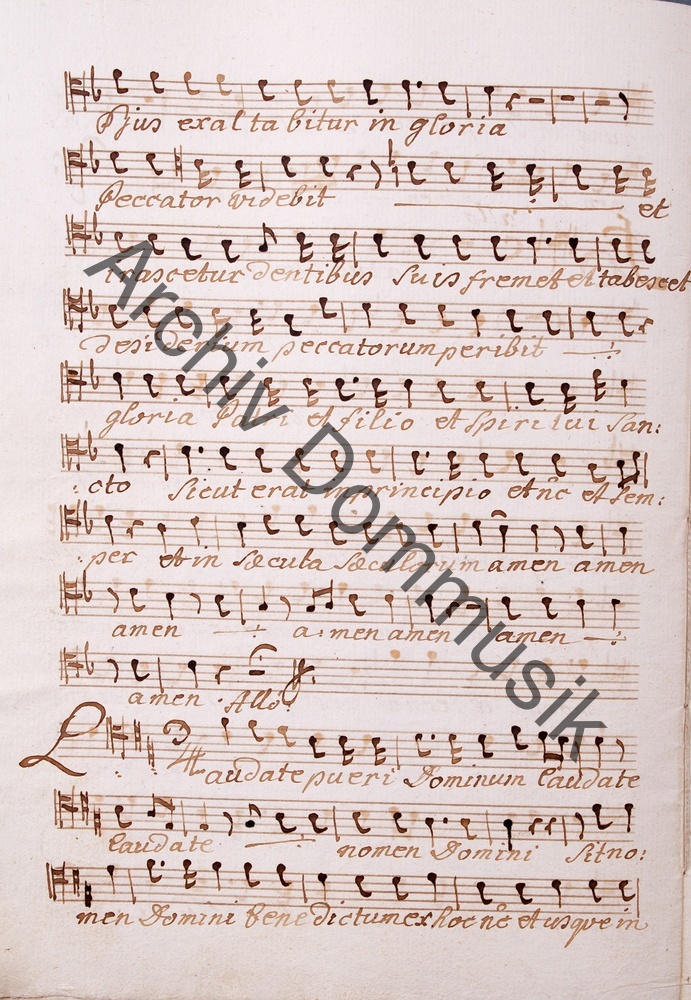 Ejus exaltabitur in gloria
Peccator videbit et
irascetur dentibus suis fremet et tabescet
desiderium peccatorum peribit
gloria Patri et filio et Spiritui San:
:cto Sicut erat in principio et nc et Sem:
:per et in Sæcula Sæculorum amen amen
amen a:men amen amen
amen Allo
Laudate pueri Dominum laudate
laudate nomen Domini Sit no:
men Domini benedictum ex hoc nc et usque in
Archiv Dommusik